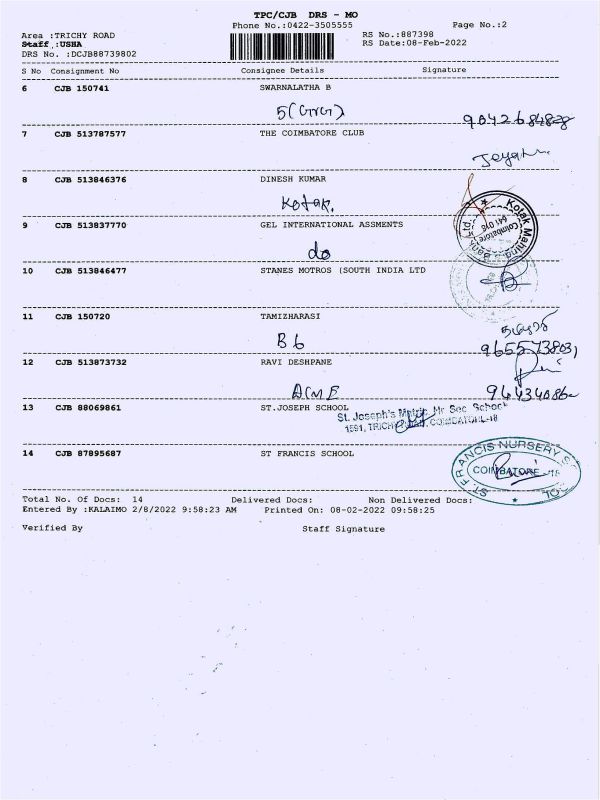 TPC/CJB DRS - MO
Phone No.:0422-3505555
Page No.:2
Area :TRICHY ROAD
RS No.:887398
Staff :USHA
RS Date:08-Feb-2022
DRS No. :DCJB88739802
S No Consignment No Consignee Details Signature
6 CJB 150741 SWARNALATHA B
9042684828
7 CJB 513787577 THE COIMBATORE CLUB
8 CJB 513846376 DINESH KUMAR
Kotak.
Kotak Mahindra Bank Ltd.
Coimbatore
641 018
9 CJB 513837770 GEL INTERNATIONAL ASSMENTS
do
10 CJB 513846477 STANES MOTROS (SOUTH INDIA LTD
11 CJB 150720 TAMIZHARASI
B6
9655738031
12 CJB 513873732 RAVI DESHPANE
ACME
13 CJB 88069861 ST.JOSEPH SCHOOL
St. Joseph's Matric Hr Sec School
1591, TRICHY ROAD, COIMBATORE-18
14 CJB 87895687 ST FRANCIS SCHOOL
ST. FRANCIS NURSERY
COIMBATORE -18
Total No. Of Docs: 14 Delivered Docs: Non Delivered Docs:
Entered By :KALAIMO 2/8/2022 9:58:23 AM Printed On: 08-02-2022 09:58:25
Verified By Staff Signature